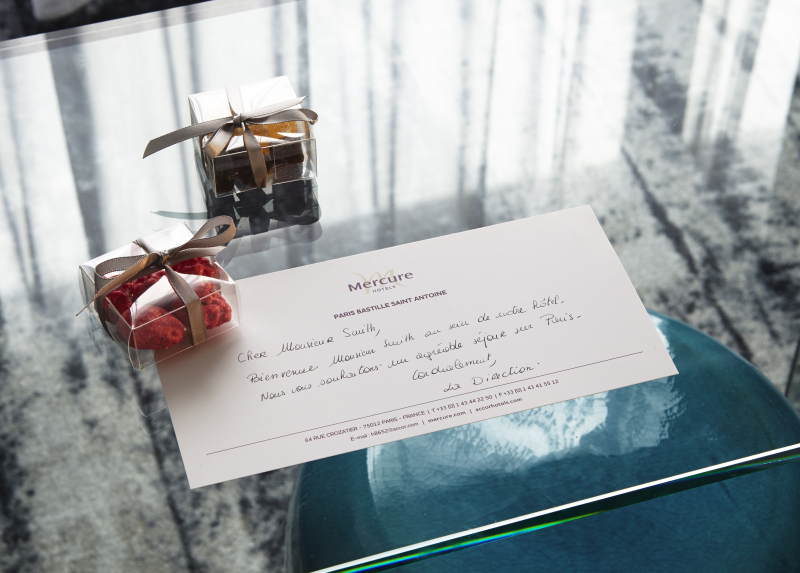 Mercure
HOTELS
PARIS BASTILLE SAINT ANTOINE
Cher Monsieur Smith,
Bienvenue Monsieur Smith au sein de notre hôtel.
Nous vous souhaitons un agréable séjour sur Paris.
Cordialement,
La Direction.
64 RUE CROZATIER - 75012 PARIS - FRANCE | T +33 (0) 1 43 44 22 50 | F +33 (0) 1 43 41 55 12
E-mail: h8652@accor.com | mercure.com | accorhotels.com